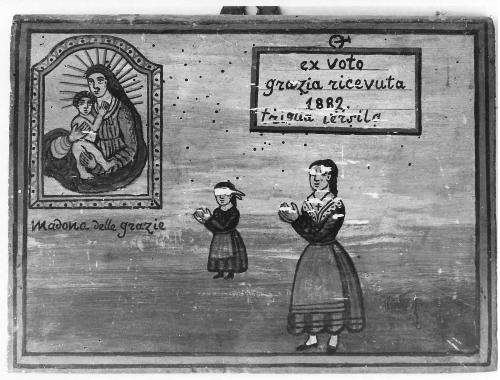 ex voto
grazia ricevuta
1882
Madona delle grazie